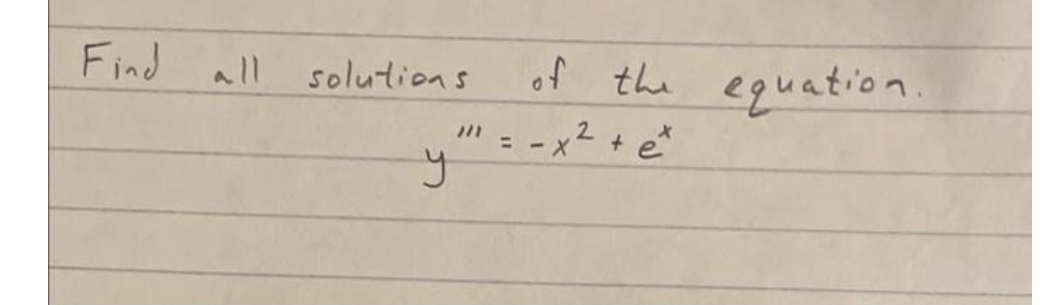 Find all solutions of the equation.
y''' = -x² + eˣ